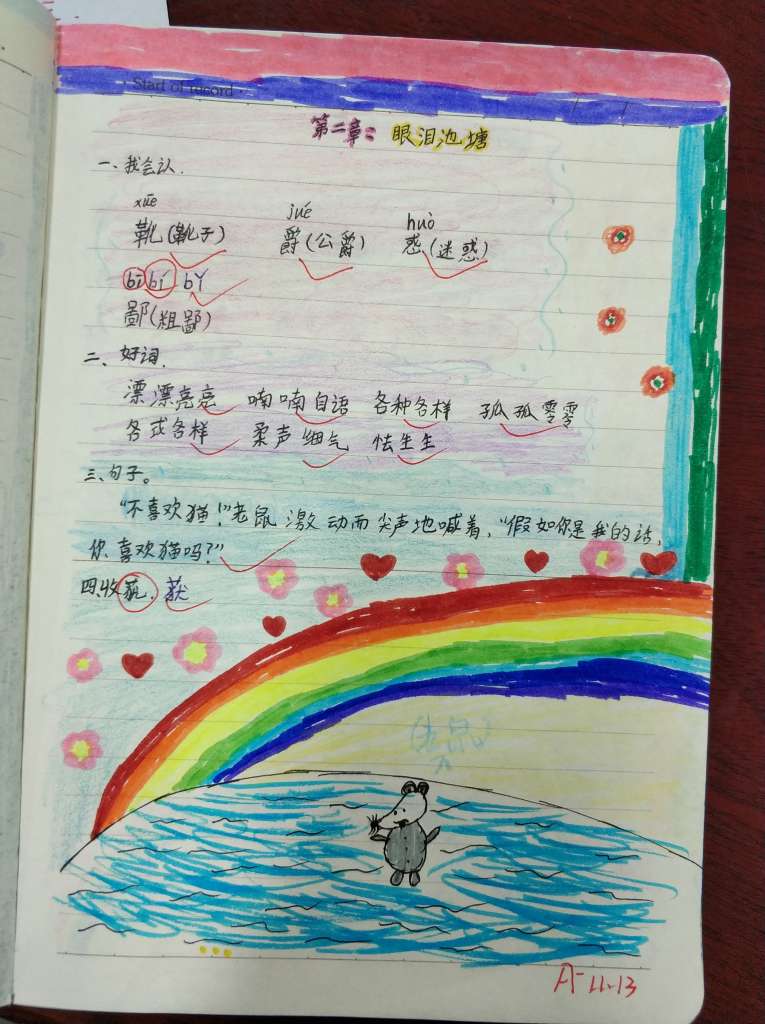 Start of record
第二章：眼泪池塘
一、我会认.
xuē jué huò
靴(靴子) 爵(公爵) 惑(迷惑)
bī bí bǐ
鄙(粗鄙)
二、好词.
漂漂亮亮 喃喃自语 各种各样 孤孤零零
各式各样 柔声细气 怯生生
三、句子。
“不喜欢猫!”老鼠激动而尖声地喊着,“假如你是我的话,
你喜欢猫吗?”
四、收获. 获
A- 11.13